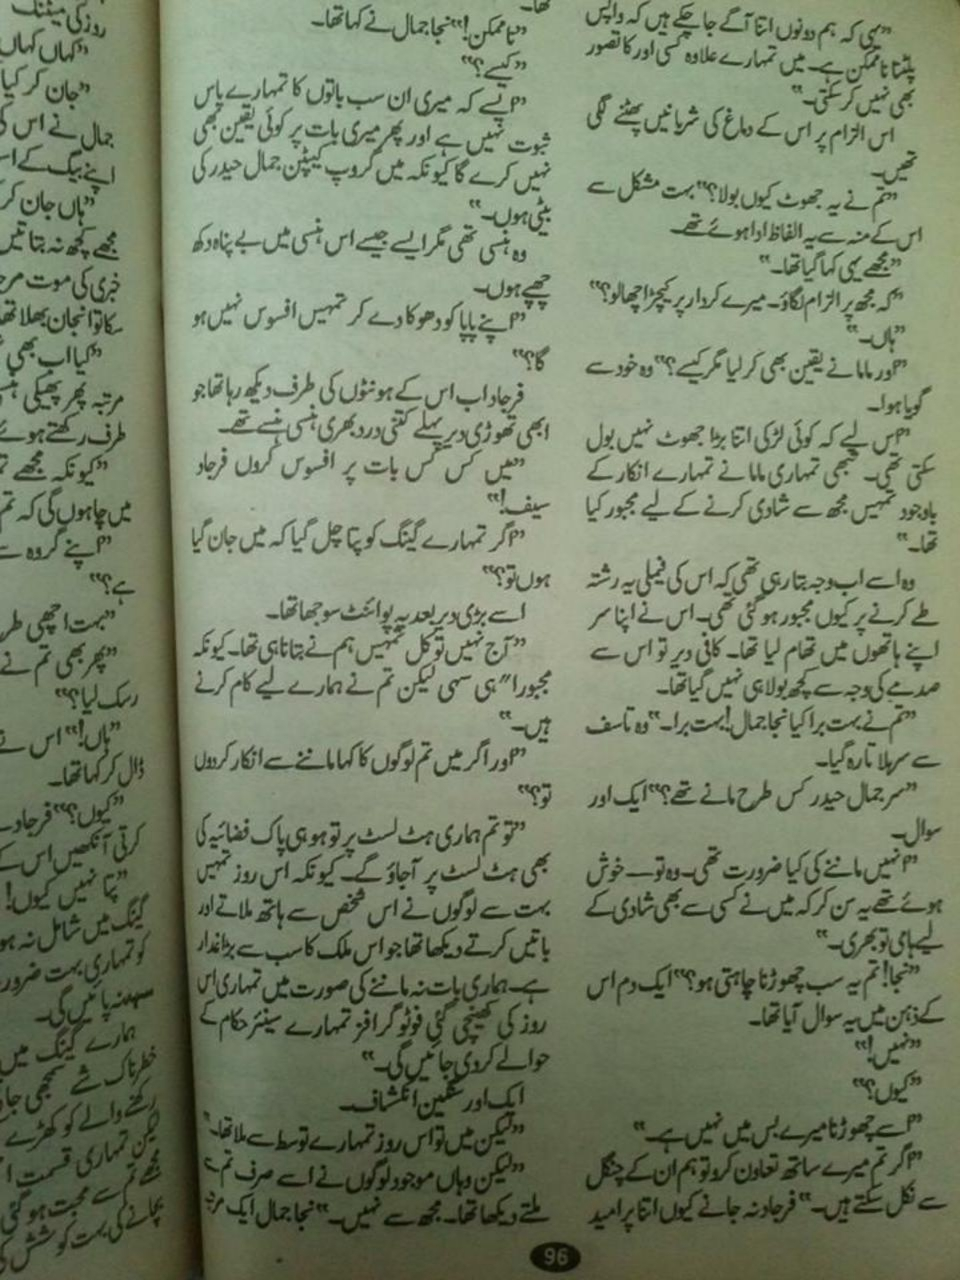 ”یہی کہ ہم دونوں اتنا آگے جا چکے ہیں کہ واپس
پلٹنا ناممکن ہے۔ میں تمہارے علاوہ کسی اور کا تصور
بھی نہیں کر سکتی۔“
اس الزام پر اس کے دماغ کی شریانیں پھٹنے لگی
تھیں۔
”تم نے یہ جھوٹ کیوں بولا؟“ بہت مشکل سے
اس کے منہ سے یہ الفاظ ادا ہوئے تھے۔
”مجھے یہی کہا گیا تھا۔“
”کہ مجھ پر الزام لگاؤ۔ میرے کردار پر کیچڑ اچھالو؟“
”ہاں۔“
”اور ماما نے یقین بھی کر لیا مگر کیسے؟“ وہ خود سے
گویا ہوا۔
”اس لیے کہ کوئی لڑکی اتنا بڑا جھوٹ نہیں بول
سکتی تھی۔ تبھی تمہاری ماما نے تمہارے انکار کے
باوجود تمہیں مجھ سے شادی کرنے کے لیے مجبور کیا
تھا۔“
وہ اسے اب وجہ بتا رہی تھی کہ اس کی فیملی یہ رشتہ
طے کرنے پر کیوں مجبور ہو گئی تھی۔ اس نے اپنا سر
اپنے ہاتھوں میں تھام لیا تھا۔ کافی دیر تو اس سے
صدمے کی وجہ سے کچھ بولا ہی نہیں گیا تھا۔
”تم نے بہت برا کیا نجا جمال! بہت برا۔“ وہ تاسف
سے سر ہلاتا رہ گیا۔
”سر جمال حیدر کس طرح مانے تھے؟“ ایک اور
سوال۔
”انہیں ماننے کی کیا ضرورت تھی۔ وہ تو— خوش
ہوئے تھے یہ سن کر کہ میں نے کسی سے بھی شادی کے
لیے ہامی تو بھری۔“
”نجا! تم یہ سب چھوڑنا چاہتی ہو؟“ ایک دم اس
کے ذہن میں یہ سوال آیا تھا۔
”نہیں!“
”کیوں؟“
”اسے چھوڑنا میرے بس میں نہیں ہے۔“
”اگر تم میرے ساتھ تعاون کرو تو ہم ان کے چنگل
سے نکل سکتے ہیں۔“ فرجاد نہ جانے کیوں اتنا پر امید
تھا۔
”ناممکن!“ نجا جمال نے کہا تھا۔
”کیسے؟“
”ایسے کہ میری ان سب باتوں کا تمہارے پاس
ثبوت نہیں ہے اور پھر میری بات پر کوئی یقین بھی
نہیں کرے گا کیونکہ میں گروپ کیپٹن جمال حیدر کی
بیٹی ہوں۔“
وہ ہنسی تھی مگر ایسے جیسے اس ہنسی میں بے پناہ دکھ
چھپے ہوں۔
”اپنے پاپا کو دھوکا دے کر تمہیں افسوس نہیں ہو
گا؟“
فرجاد اب اس کے ہونٹوں کی طرف دیکھ رہا تھا جو
ابھی تھوڑی دیر پہلے کتنی درد بھری ہنسی ہنسے تھے۔
”میں کس کس بات پر افسوس کروں فرجاد
سیف!“
”اگر تمہارے گینگ کو پتا چل گیا کہ میں جان گیا
ہوں تو؟“
اسے بڑی دیر بعد یہ پوائنٹ سوجھا تھا۔
”آج نہیں تو کل تمہیں ہم نے بتانا ہی تھا۔ کیونکہ
مجبوراً“ ہی سہی لیکن تم نے ہمارے لیے کام کرنے
ہیں۔“
”اور اگر میں تم لوگوں کا کہا ماننے سے انکار کر دوں
تو؟“
”تو تم ہماری ہٹ لسٹ پر تو ہو ہی پاک فضائیہ کی
بھی ہٹ لسٹ پر آ جاؤ گے۔ کیونکہ اس روز تمہیں
بہت سے لوگوں نے اس شخص سے ہاتھ ملاتے اور
باتیں کرتے دیکھا تھا جو اس ملک کا سب سے بڑا غدار
ہے۔ ہماری بات نہ ماننے کی صورت میں تمہاری اس
روز کی کھینچی گئی فوٹو گرافز تمہارے سینئر حکام کے
حوالے کر دی جائیں گی۔“
ایک اور سنگین انکشاف۔
”لیکن میں تو اس روز تمہارے توسط سے ملا تھا۔“
”لیکن وہاں موجود لوگوں نے اسے صرف تم سے
ملتے دیکھا تھا۔ مجھ سے نہیں۔“ نجا جمال ایک مرتبہ
96
روز کی میٹنگ
”کہاں کہاں
”جان کر کیا
جمال نے اس کی
اپنے بیگ کے
”ہاں جان کر
مجھے کچھ نہ بتائیں
خبری کی موت
سکا تو انجان بھلا تھا
”کیا اب بھی
مرتبہ پھر پھیکی
طرف رکھتے ہوئے
”کیونکہ مجھے
میں چاہوں گی کہ تم
”اپنے گروہ سے
ہے؟“
”بہت اچھی طر
”پھر بھی تم نے
رسک لیا؟“
”ہاں!“ اس نے
ڈال کر کہا تھا۔
”کیوں؟“ فرجاد
کرتی آنکھیں اس کے
”پتا نہیں کیوں!
گینگ میں شامل نہ ہو
کو تمہاری بہت ضرور
سہہ نہ پائیں گی۔
ہمارے گینگ میں
خطرناک شے سمجھی جا
رکھنے والے کو کھڑے
لیکن تمہاری قسمت
مجھے تم سے محبت ہو گئی
بچانے کی بہت کوشش کی